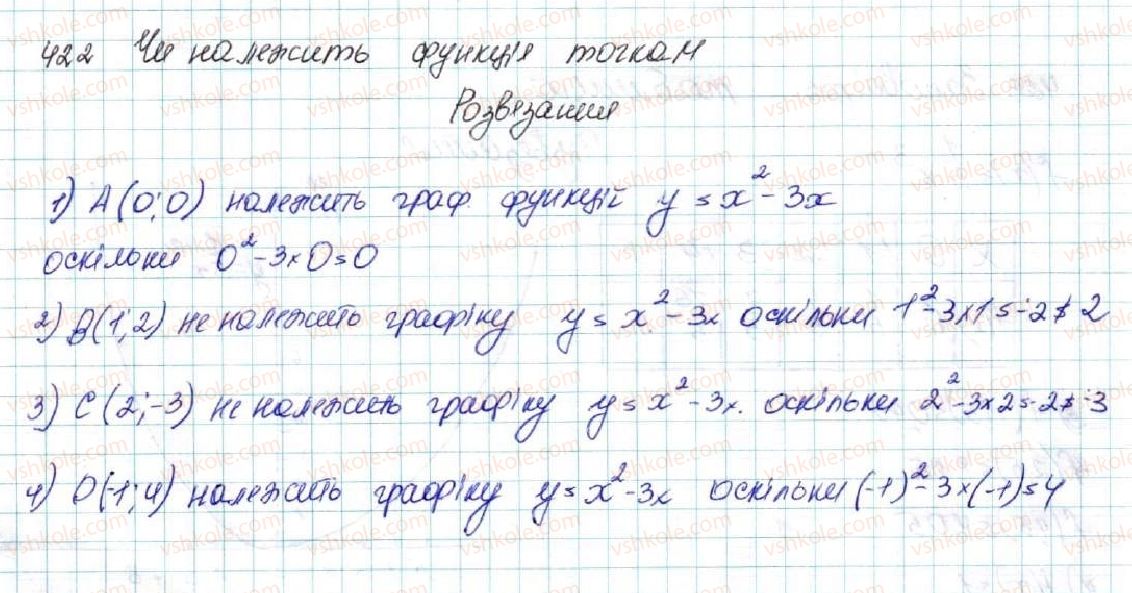 422 Чи належить функція точкам
Розвязання
1) A(0;0) належить граф. функцій y = x² - 3x
оскільки 0² - 3×0 = 0
2) B(1;2) не належить графіку y = x² - 3x оскільки 1² - 3×1 = -2 ≠ 2
3) C(2;-3) не належить графіку y = x² - 3x. оскільки 2² - 3×2 = -2 ≠ -3
4) D(-1;4) належить графіку y = x² - 3x оскільки (-1)² - 3×(-1) = 4